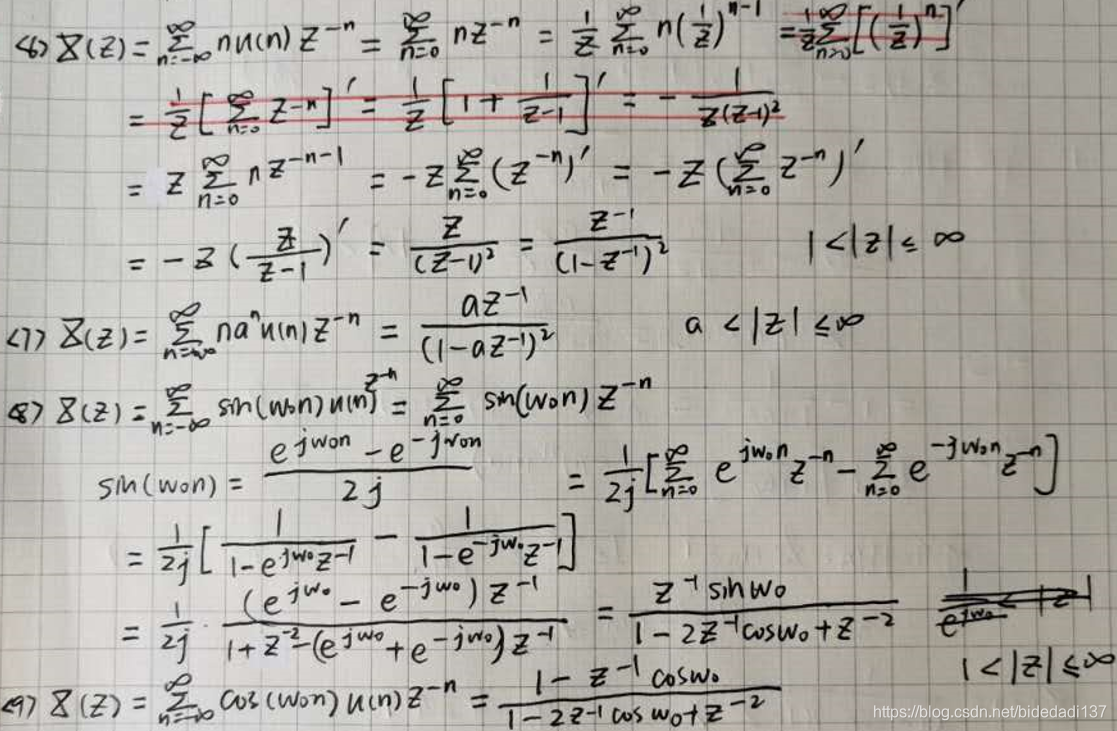 <6> X(z) = ∑_{n=-∞}^{∞} nu(n) z^{-n} = ∑_{n=0}^{∞} nz^{-n} = 1/z ∑_{n=0}^{∞} n(1/z)^{n-1} = 1/z ∑_{n=0}^{∞} [(1/z)^n]'
= 1/z [∑_{n=0}^{∞} z^{-n}]' = 1/z [1 + 1/(z-1)]' = - 1/(z(z-1)^2)
= z ∑_{n=0}^{∞} n z^{-n-1} = -z ∑_{n=0}^{∞} (z^{-n})' = -z (∑_{n=0}^{∞} z^{-n})'
= -z (z/(z-1))' = z/(z-1)^2 = z^{-1}/(1-z^{-1})^2 1<|z|≤∞
<7> X(z) = ∑_{n=-∞}^{∞} na^n u(n) z^{-n} = az^{-1}/(1-az^{-1})^2 a<|z|≤∞
<8> X(z) = ∑_{n=-∞}^{∞} sin(w₀n)u(n) z^{-n} = ∑_{n=0}^{∞} sin(w₀n) z^{-n}
sin(w₀n) = (e^{jw₀n} - e^{-jw₀n})/2j = 1/2j [∑_{n=0}^{∞} e^{jw₀n} z^{-n} - ∑_{n=0}^{∞} e^{-jw₀n} z^{-n}]
= 1/2j [1/(1-e^{jw₀}z^{-1}) - 1/(1-e^{-jw₀}z^{-1})]
= 1/2j · (e^{jw₀} - e^{-jw₀}) z^{-1}/(1+z^{-2}-(e^{jw₀}+e^{-jw₀})z^{-1}) = z^{-1} sinw₀/(1-2z^{-1}cosw₀+z^{-2})
1<|z|≤∞
<9> X(z) = ∑_{n=-∞}^{∞} cos(w₀n) u(n) z^{-n} = (1 - z^{-1} cosw₀)/(1-2z^{-1}cosw₀+z^{-2})
https://blog.csdn.net/bidedadi137